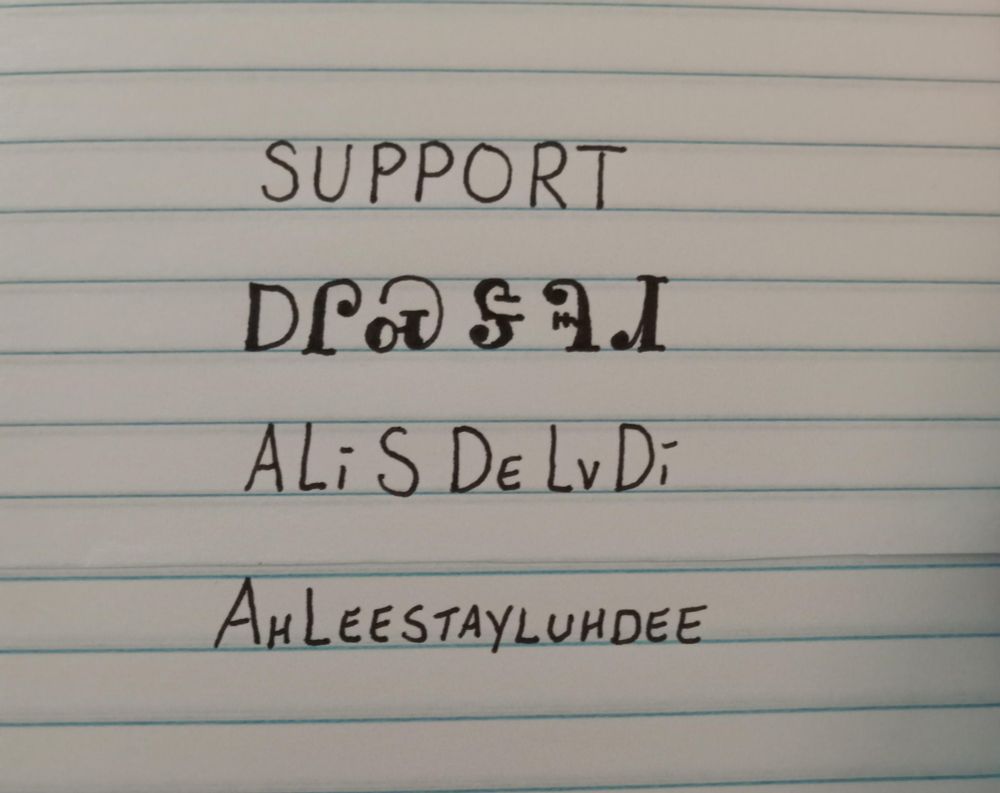 SUPPORT
ᎠᎵᏍᏕᎸᏗ
ALi S DE LvDi
AHLEESTAYLUHDEE